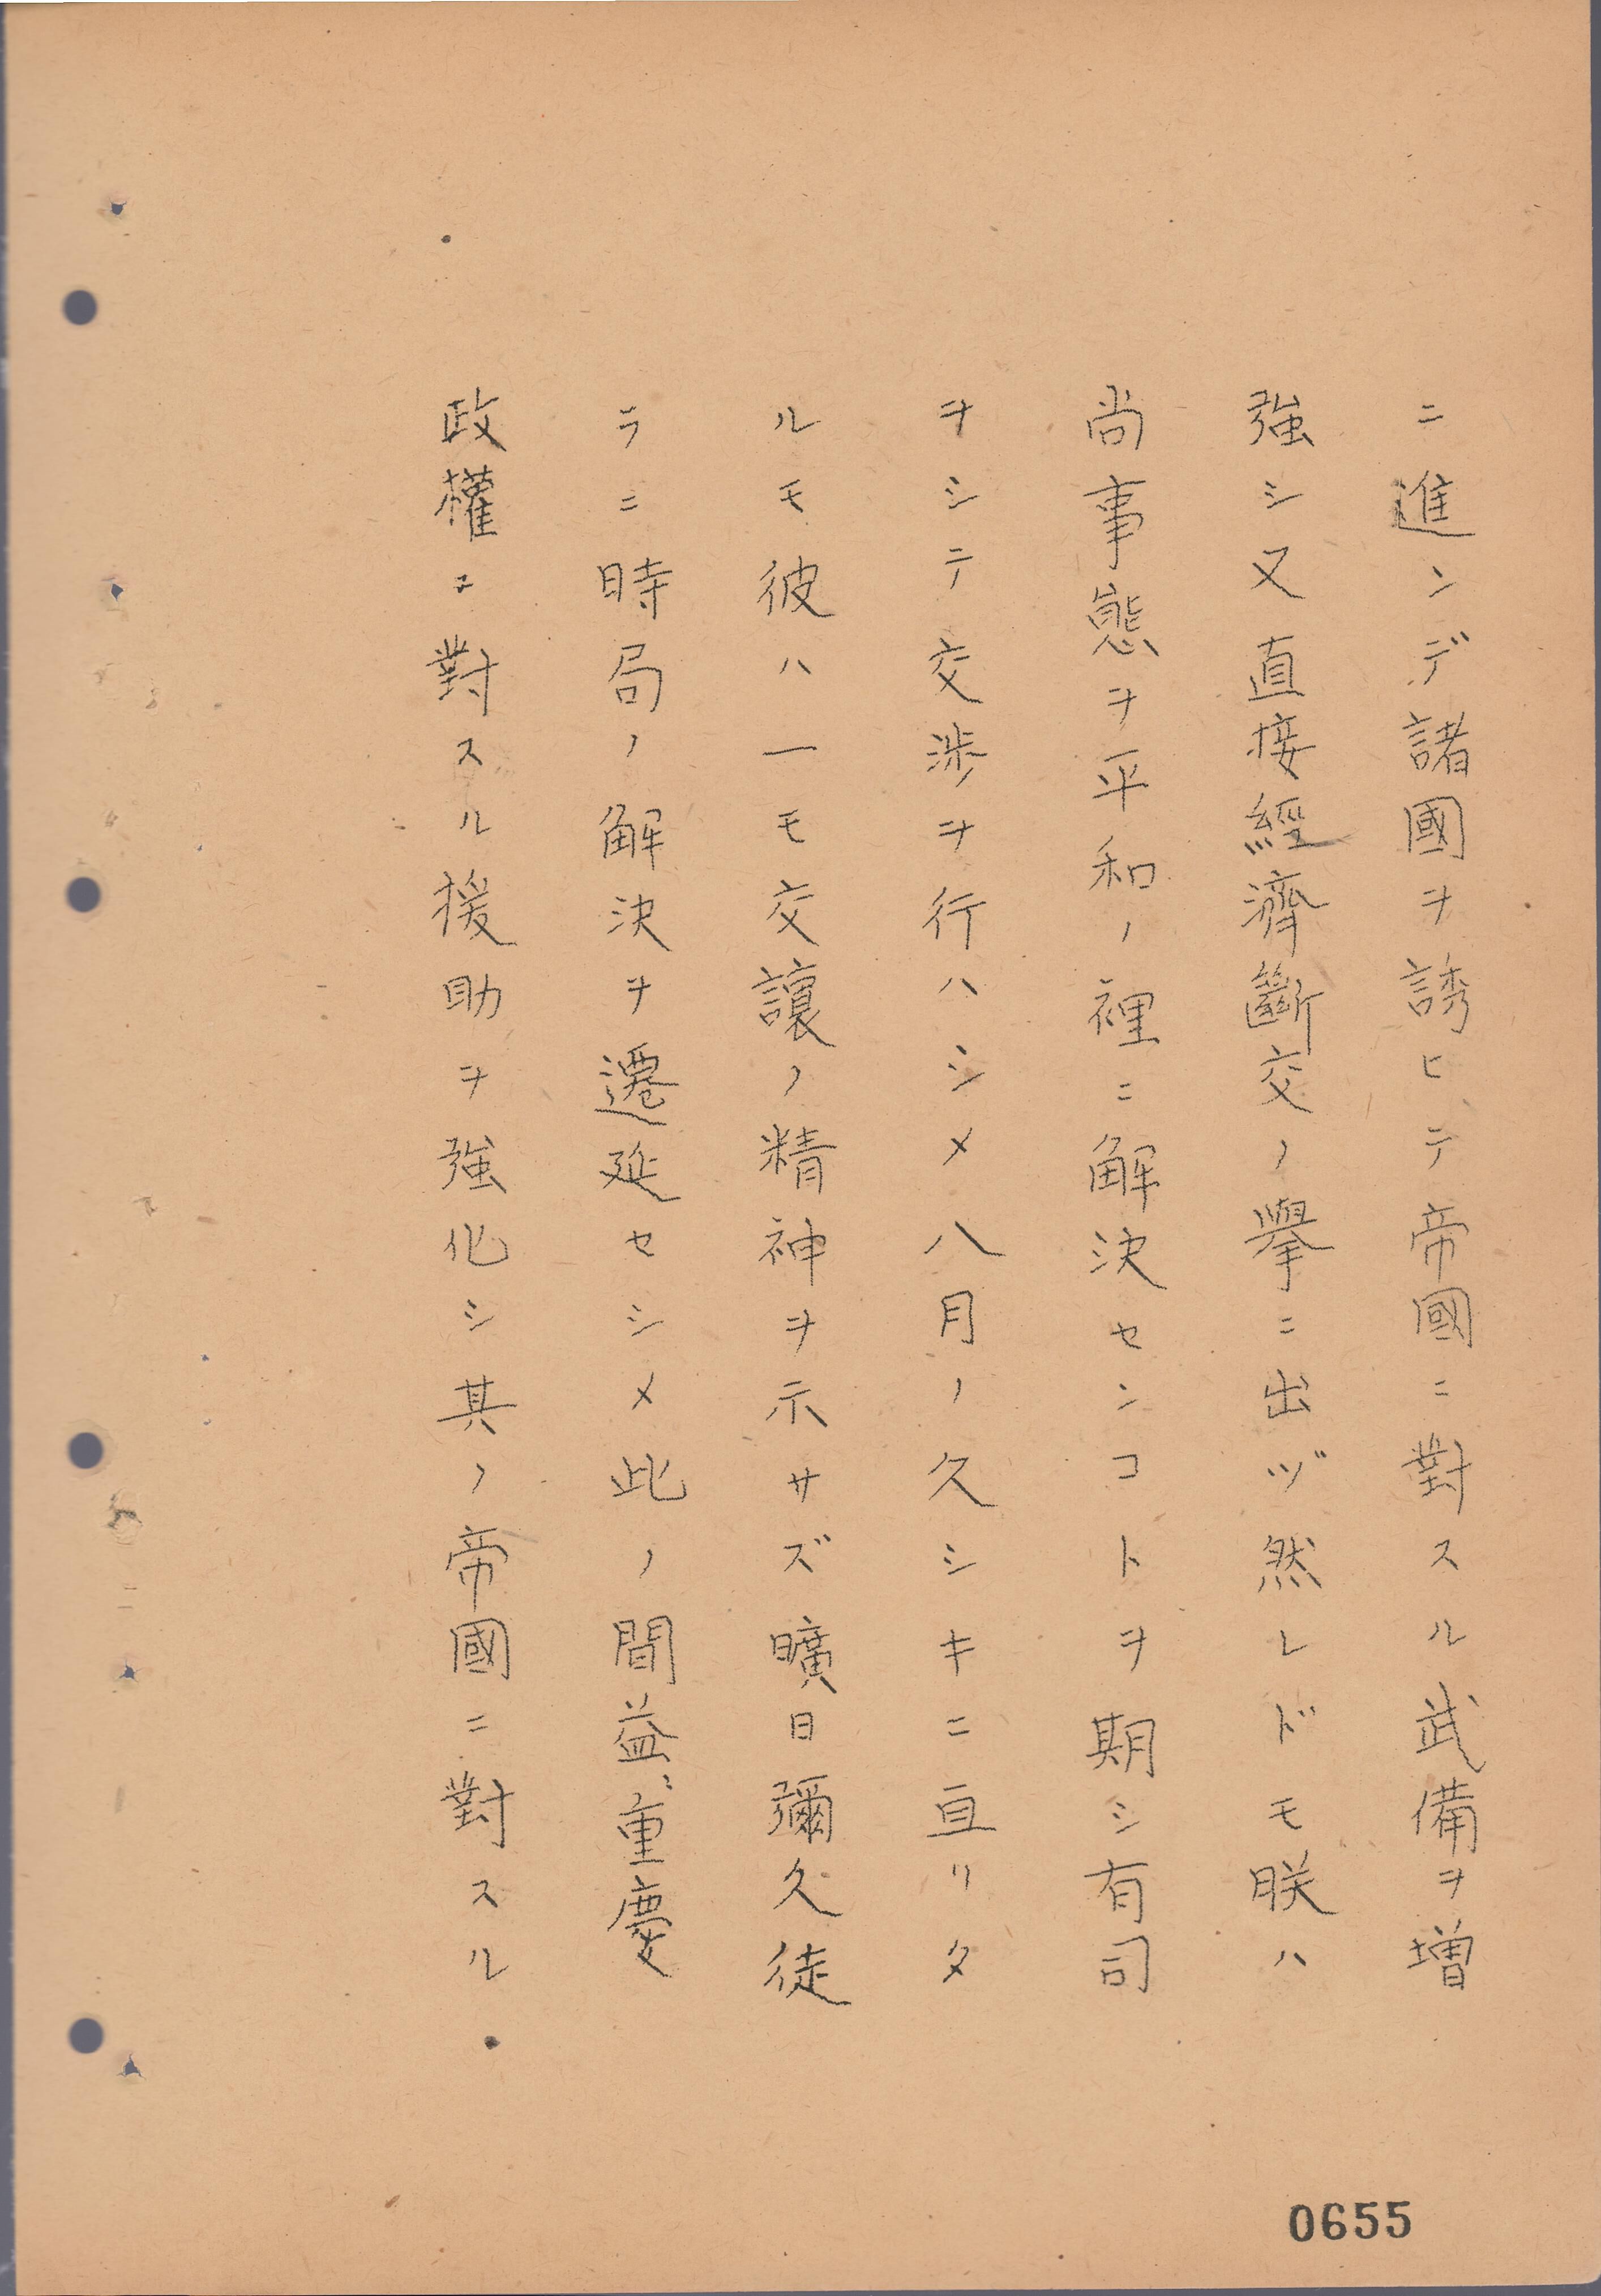 ニ進ンデ諸國ヲ誘ヒテ帝國ニ對スル武備ヲ増
強シ又直接經濟斷交ノ擧ニ出ヅ然レドモ朕ハ
尚事態ヲ平和ノ裡ニ解決センコトヲ期シ有司
ヲシテ交渉ヲ行ハシメ八月ノ久シキニ亘リタ
ルモ彼ハ一モ交讓ノ精神ヲ示サズ曠日彌久徒
ラニ時局ノ解決ヲ遷延セシメ此ノ間益〻重慶
政權ニ對スル援助ヲ強化シ其ノ帝國ニ對スル
0655